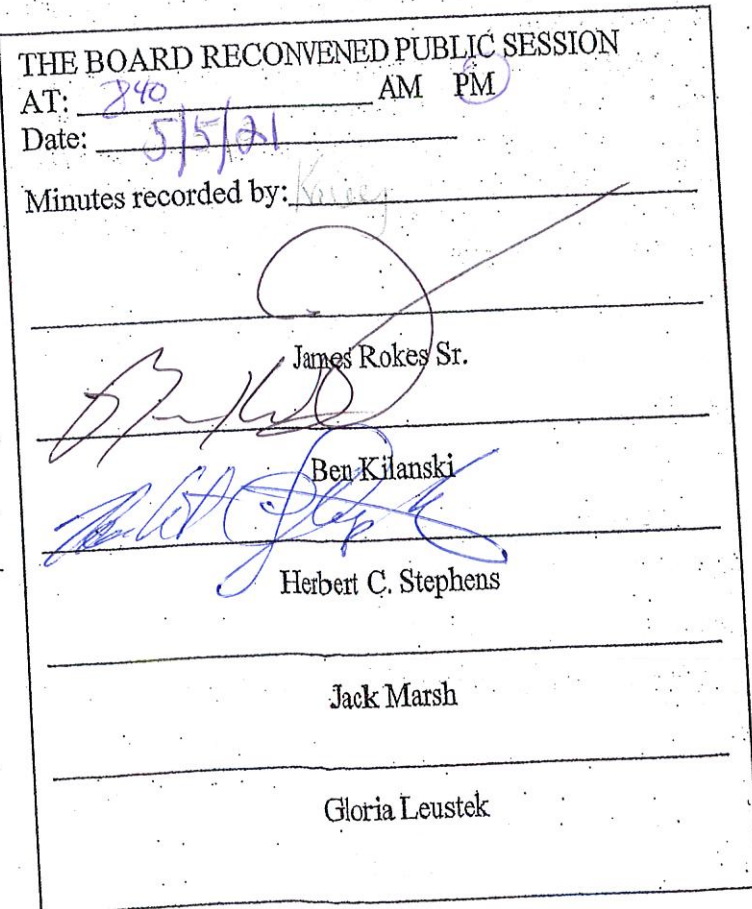 THE BOARD RECONVENED PUBLIC SESSION
AT: 840 AM PM
Date: 5/5/21
Minutes recorded by:
James Rokes Sr.
Ben Kilanski
Herbert C. Stephens
Jack Marsh
Gloria Leustek